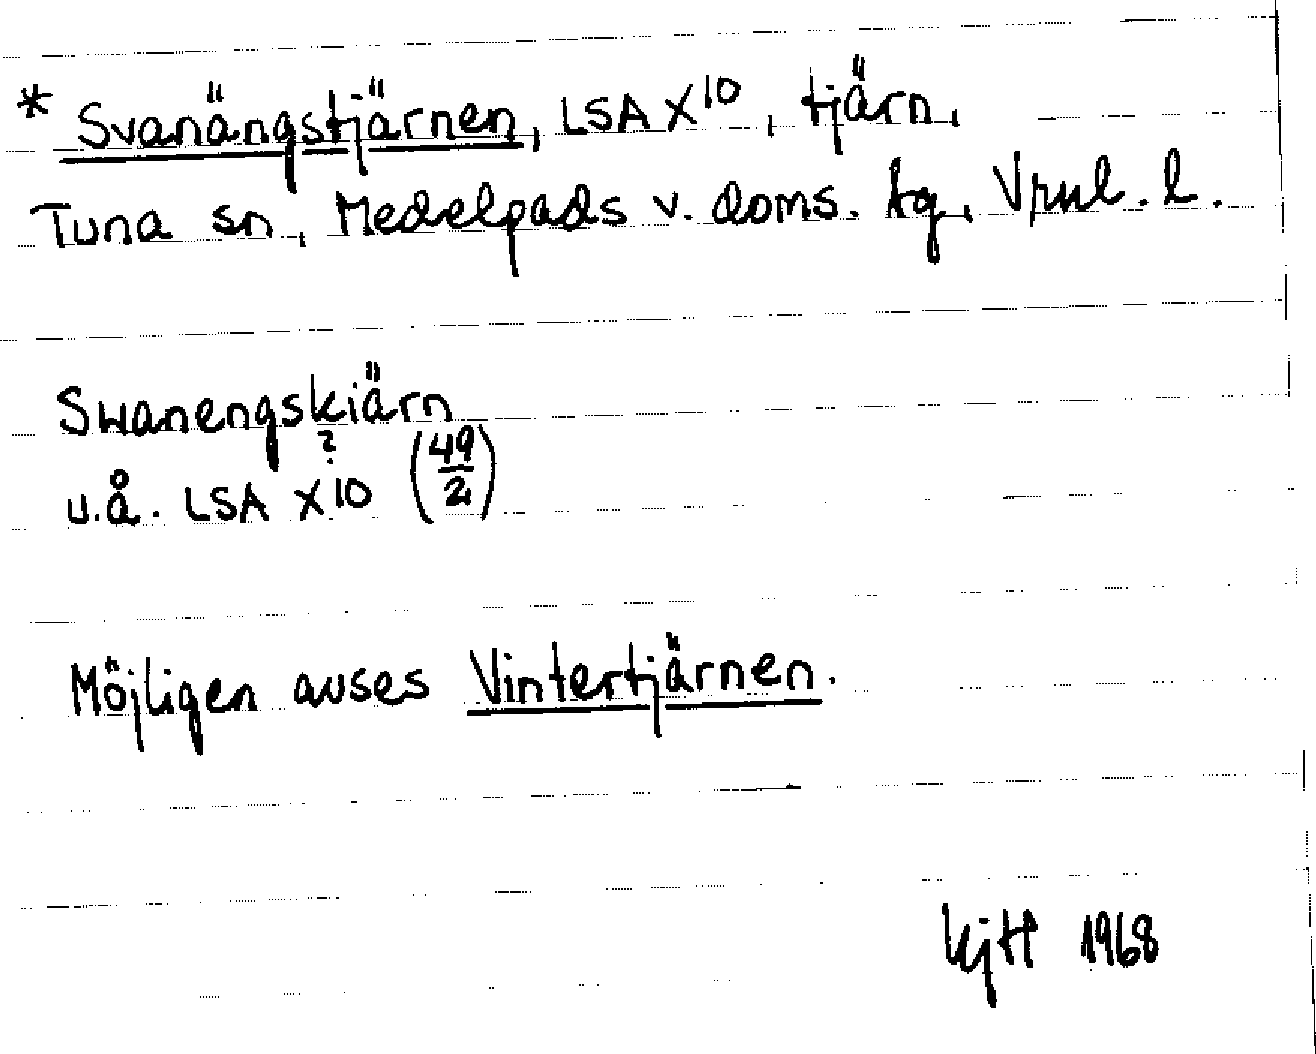 * Svanängstjärnen, LSA X 10, tjärn,
Tuna sn, Medelpads v. doms. tg, Vrnl. l.
Swanengskiärn
?
u.å. LSA X 10 (49/2)
Möjligen avses Vintertjärnen.
KjH 1968